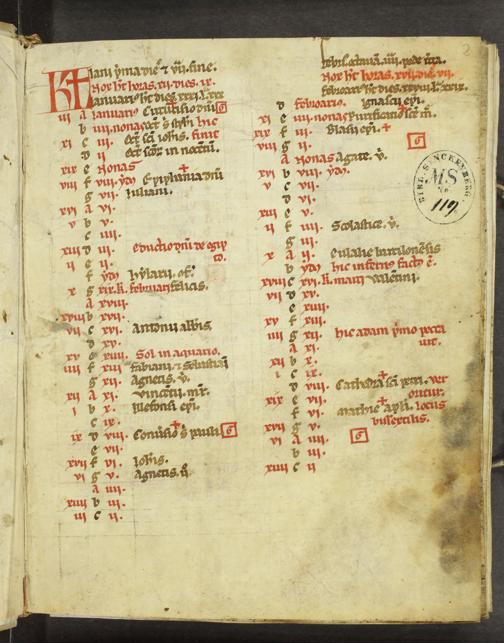 iani prima die & vii. fine.
Nox ht horas. xvi. dies. ix.
Ianuarius ht dies xxxi. l. xxx
iii a ianuarii Circumcisio dni 6
b iiii. nonas oct' s. stephi hic
xi c iii. Oct' sci iohis. finit
d ii Oct' scor innocentum.
xix e nonas
viii f viii. ydus Epiphania dni
g vii. iuliani.
xvi a vi.
v b v.
c iiii.
xiii d iii. eductio dni de egip
to.
ii e ii.
f ydus hylarii. of.
x g xix. k. februarii felicis.
a xviii.
xviii b xvii.
vii c xvi. antonii abbis
d xv.
xv e xiiii. Sol in aquario.
iiii f xiii fabiani & sebastiani
g xii. Agnetis. v.
xii a xi. vincentii. mr.
i b x. ildefonsi epi.
c ix.
ix d viii. Conversio s. pauli 6
e vii.
xvii f vi. iohis.
vi g v. agnetis. ii.
a iiii.
xiiii b iii.
iii c ii.
2
Nox ht horas. xiiii. dies. x.
februarius ht dies. xxviii. l. xxix.
d februario. ignacii epi.
xi e iiii. nonas purificatio sce m.
xix f iii. Blasii epi. +
viii g ii. 6
a nonas Agate. v.
xvi b viii. ydus.
v c vii.
d vi.
xiii e v.
ii f iiii. Scolastice. v.
g iii.
x a ii. eulalie barcilonesis
b ydus hic infernus factus e.
xviii c xvi. k. marcii valentini.
vii d xv.
e xiiii.
xv f xiii.
iiii g xii. hic adam primo pecca
a xi. vit.
xii b x.
i c ix.
d viii. Cathedra sci petri. ver
ix e vii. oritur.
f vi. mathie apli. locus
xvii g v. bissextilis.
vi a iiii. 6
b iii.
xiiii c ii
BIBL. SENCKENBERG
MS
No
119.